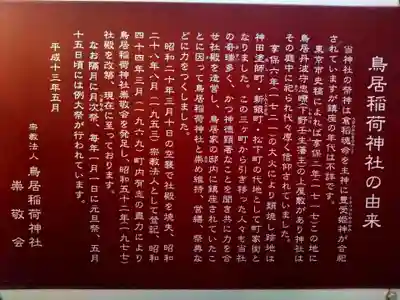 鳥居稲荷神社の由来
当神社の祭神は倉稲魂命を主神に豊受姫神が合祀
されていますが鎮座の年代は不詳です。
東京市史稿によれば享保二年(一七一七)この地に
鳥居丹波守忠瞭(下野壬生藩主)の上屋敷があり神社は
その庭中に祀られ代々厚く信仰されていました。
享保六年(一七二一)の大火により類焼し跡地は
神田塗師町・新銀町・松下町の代地として町家街と
なりました。この三ヶ町から引き移った人々も当社
の奇瑞多く、かつ神徳顕著なことを聞き共に力を合
せ社殿を造営し、鳥居家の邸内に鎮座されていたこ
とに因って鳥居稲荷神社と崇め維持、営繕、祭典な
どに力をつくしました。
昭和二十年三月十日の空襲で社殿を焼失、昭和
二十八年八月(一九五三)宗教法人として登記、昭和
四十四年三月(一九六九)町内有志の尽力により
鳥居稲荷神社崇敬会を発足し、昭和五十二年(一九七七)
社殿を改築、現在に至っております。
なお隔月に月次祭、毎年一月一日に元旦祭、五月
十五日頃には例大祭が行われています。
平成十三年五月
宗教法人 鳥居稲荷神社
崇敬会